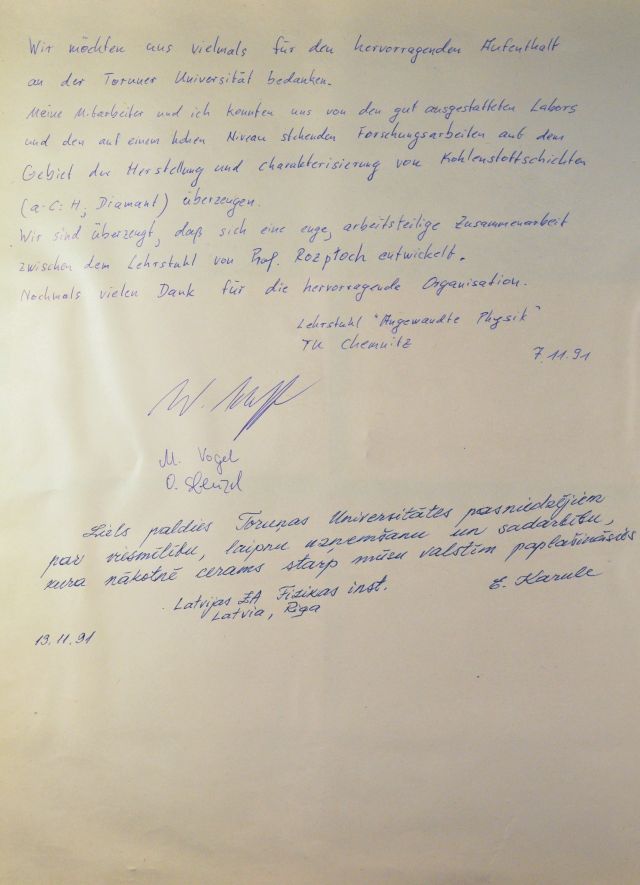 Wir möchten uns vielmals für den hervorragenden Aufenthalt
an der Toruner Universität bedanken.
Meine Mitarbeiter und ich konnten uns von den gut ausgestatteten Labors
und den auf einem hohen Niveau stehenden Forschungsarbeiten auf dem
Gebiet der Herstellung und Charakterisierung von Kohlenstoffschichten
(a-C:H, Diamant) überzeugen.
Wir sind überzeugt, daß sich eine enge, arbeitsteilige Zusammenarbeit
zwischen dem Lehrstuhl von Prof. Rozpłoch entwickelt.
Nochmals vielen Dank für die hervorragende Organisation.
Lehrstuhl "Angewandte Physik"
TU Chemnitz
7.11.91
W.
M. Vogel
O. Stenzel
Liels paldies Toruņas Universitātes pasniedzējiem
par viesmīlību, laipnu uzņemšanu un sadarbību,
kura nākotnē cerams starp mūsu valstīm paplašināsies
Latvijas ZA Fizikas inst.
E. Karule
Latvia, Riga
13.11.91